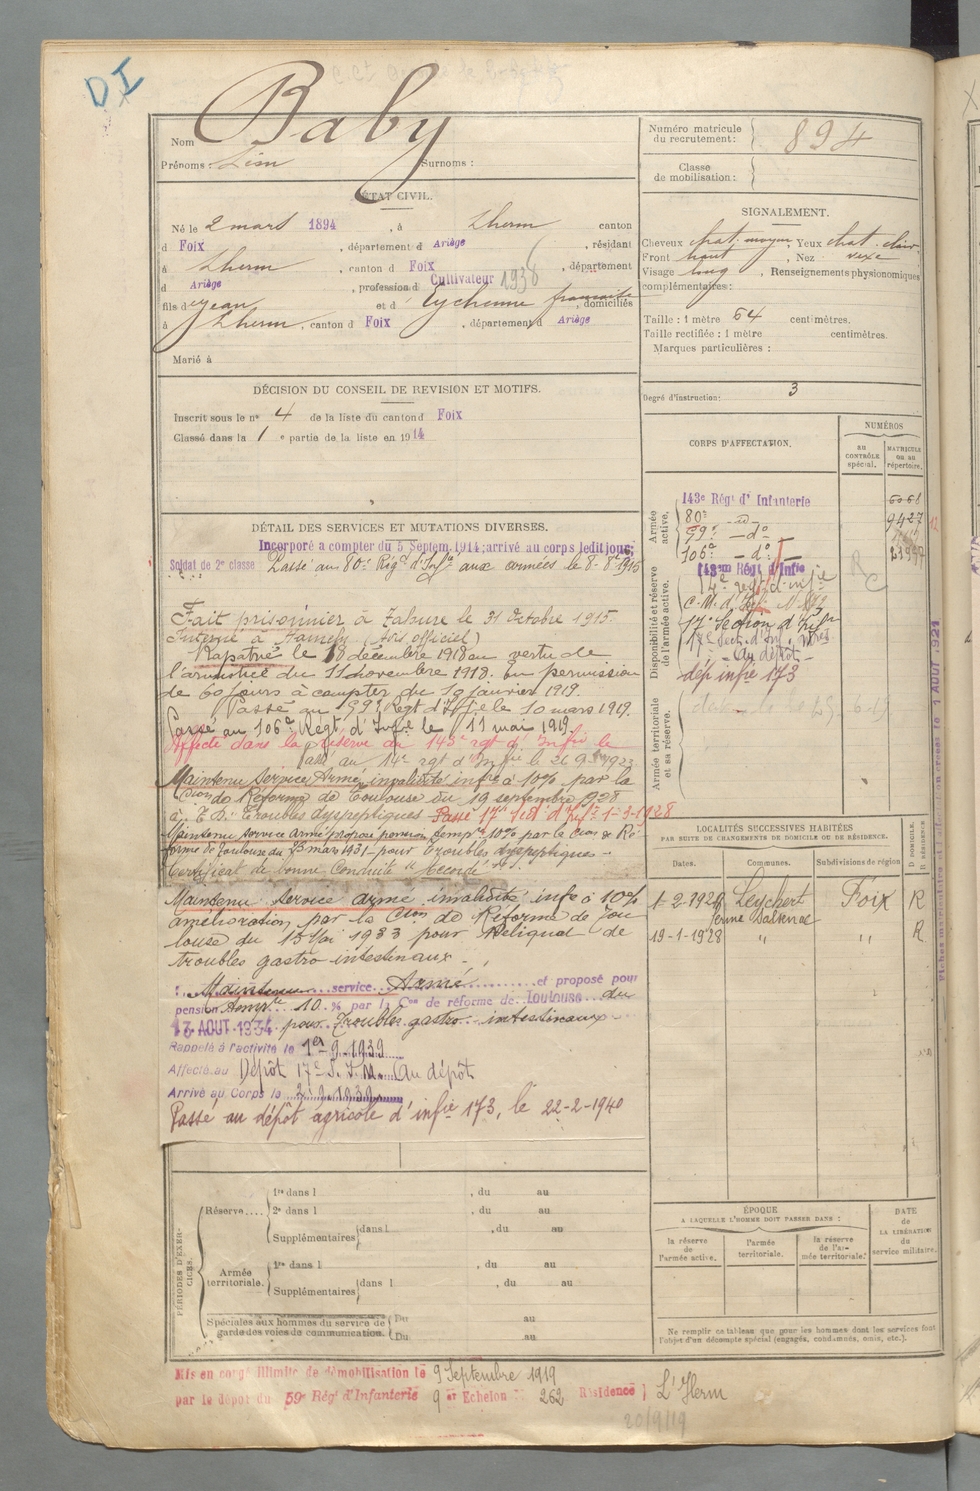 DI
Nom Baby
Prénoms : Léon Surnoms :
Numéro matricule du recrutement : 894
Classe de mobilisation :
ÉTAT CIVIL.
Né le 2 mars 1894, à Lherm canton
d Foix, département d Ariège, résidant
à Lherm, canton d Foix, département
d Ariège, profession d Cultivateur 1938
fils de Jean et d' Eychenne française, domiciliés
à Lherm, canton d Foix, département d Ariège
Marié à
SIGNALEMENT.
Cheveux chat. moyen, Yeux chat. clair
Front haut, Nez vexe
Visage long, Renseignements physionomiques
complémentaires :
Taille : 1 mètre 64 centimètres.
Taille rectifiée : 1 mètre centimètres.
Marques particulières :
Degré d'instruction : 3
DÉCISION DU CONSEIL DE REVISION ET MOTIFS.
Inscrit sous le n° 4 de la liste du canton d Foix
Classé dans la 1e partie de la liste en 1914
DÉTAIL DES SERVICES ET MUTATIONS DIVERSES.
Incorporé à compter du 5 Septem. 1914; arrivé au corps ledit jour;
Soldat de 2e classe Passé au 80e Régt d'Infie aux armées le 8-8-1915
Fait prisonnier à Tahure le 31 Octobre 1915.
Interné à Hameln (avis officiel)
Rapatrié le 18 décembre 1918 en vertu de
l'armistice du 11 novembre 1918. En permission
de 60 jours à compter du 19 janvier 1919.
Passé au 99e Régt d'Infie le 10 mars 1919.
Passé au 106e Régt d'Infie le 11 mai 1919
Affecté dans la réserve au 143e rgt d'Infie le
Passé au 14e rgt d'Infie le 26 9 1923
Maintenu Service Armé, invalidité infre à 10% par la
Cion de Réforme de Toulouse du 19 septembre 1928
Troubles dyspeptiques Passé 17e Sect d'Infm 1-3-1928
Maintenu service armé proposé pension tempre 10% par la Cion de Ré
forme de Toulouse du 23 mars 1931 - pour Troubles dyspeptiques -
Certificat de bonne Conduite "Accordé"
Maintenu Service armé invalidité infre à 10%
amélioration par la Cion de Réforme de Tou
louse du 15 Mai 1933 pour Reliquat de
troubles gastro intestinaux -
Maintenu service Armé et proposé pour
pension tempre 10 % par la Con de réforme de Toulouse du
13 AOUT 1934 pour Troubles gastro-intestinaux
Rappelé à l'activité le 1er 9.1939
Affecté au Dépôt 17e S.I.M. Au dépôt
Arrivé au Corps le 2.9.1939
Passé au dépôt agricole d'infie 173, le 22-2-1940
CORPS D'AFFECTATION.
NUMÉROS
AU CONTRÔLE spécial.
MATRICULE ou au répertoire.
Armée active.
143e Régt d'Infanterie 6068
80e - do - 9427
99e - do -
106e - do - 23997
Disponibilité et réserve de l'armée active.
143me Régt d'Infie
14e regt d'infie
17e Section d'Infm
17e Sect. d'Inf. Mres
- Au dépôt -
dép infie 173
RC
Armée territoriale et sa réserve.
LOCALITÉS SUCCESSIVES HABITÉES
PAR SUITE DE CHANGEMENTS DE DOMICILE OU DE RÉSIDENCE.
Dates. Communes. Subdivisions de région D DOMICILE R RÉSIDENCE
1-2-1926 Leychert Foix R
19-1-1928 " " R
ÉPOQUE
A LAQUELLE L'HOMME DOIT PASSER DANS :
la réserve de l'armée active.
l'armée territoriale.
la réserve de l'armée territoriale.
DATE DE LA LIBÉRATION du service militaire.
Ne remplir ce tableau que pour les hommes dont les services font
l'objet d'un décompte spécial (engagés, condamnés, omis, etc.).
PÉRIODES D'EXERCICES.
Réserve....
1re dans l , du au
2e dans l , du au
Supplémentaires dans l , du au
Armée territoriale.
1re dans l , du au
Supplémentaires dans l , du au
Spéciales aux hommes du service de garde des voies de communication.
Du au
Du au
Mis en congé illimité de démobilisation le 9 Septembre 1919
par le dépôt du 59e Régt d'Infanterie 9 e Echelon 262 Résidence L'Herm
20/9/19